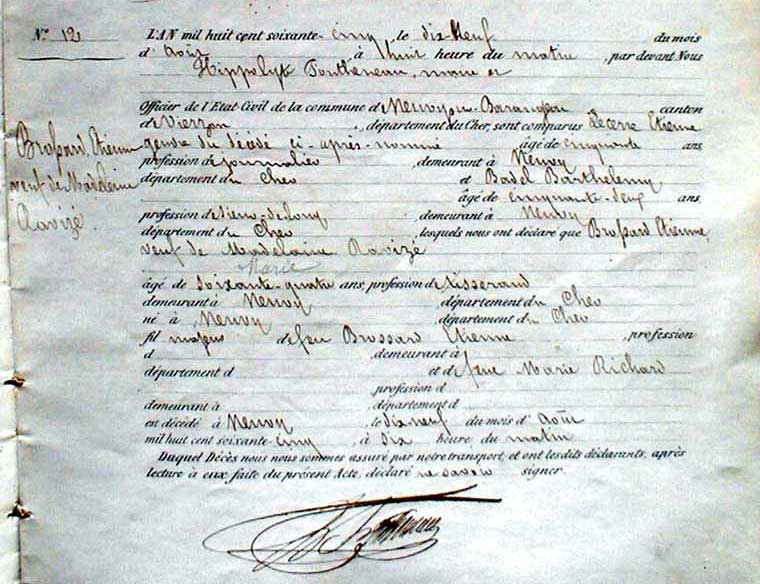 N.° 12
L'AN mil huit cent soixante-cinq, le dix-neuf du mois
d'août à huit heure du matin, par devant Nous
Hippolyte maire et
Officier de l'Etat-Civil de la commune d Neuvy sur Barangeon canton
de Vierzon, département du Cher, sont comparus Lecerre Etienne
gendre du décédé ci-après nommé âgé de cinquante ans,
profession de journalier, demeurant à Neuvy
département du Cher et Badel Barthélemy
âgé de cinquante-deux ans,
profession de scieur de long, demeurant à Neuvy
département du Cher, lesquels nous ont déclaré que Brossard Etienne,
veuf de Madelaine Ravizé
Marie
âgé de soixante-quatre ans, profession de tisserand
demeurant à Neuvy, département du Cher
né à Neuvy département du Cher
fil majeur de feu Brossard Etienne, profession
d, demeurant à
département d et de feue Marie Richard
, profession d
demeurant à, département d
est décédé à Neuvy, le dix-neuf du mois d'août
mil huit cent soixante-cinq, à dix heure du matin
Duquel Décès nous nous sommes assuré par notre transport, et ont lesdits déclarants, après
lecture à eux faite du présent Acte, déclaré ne savoir signer.
Brossard, Etienne
veuf de Madelaine
Ravizé.